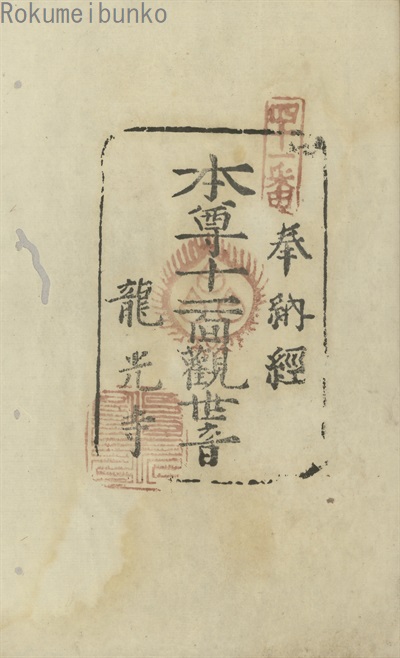 Rokumeibunko
四十一番
奉納經
本尊十一面觀世音
龍光寺